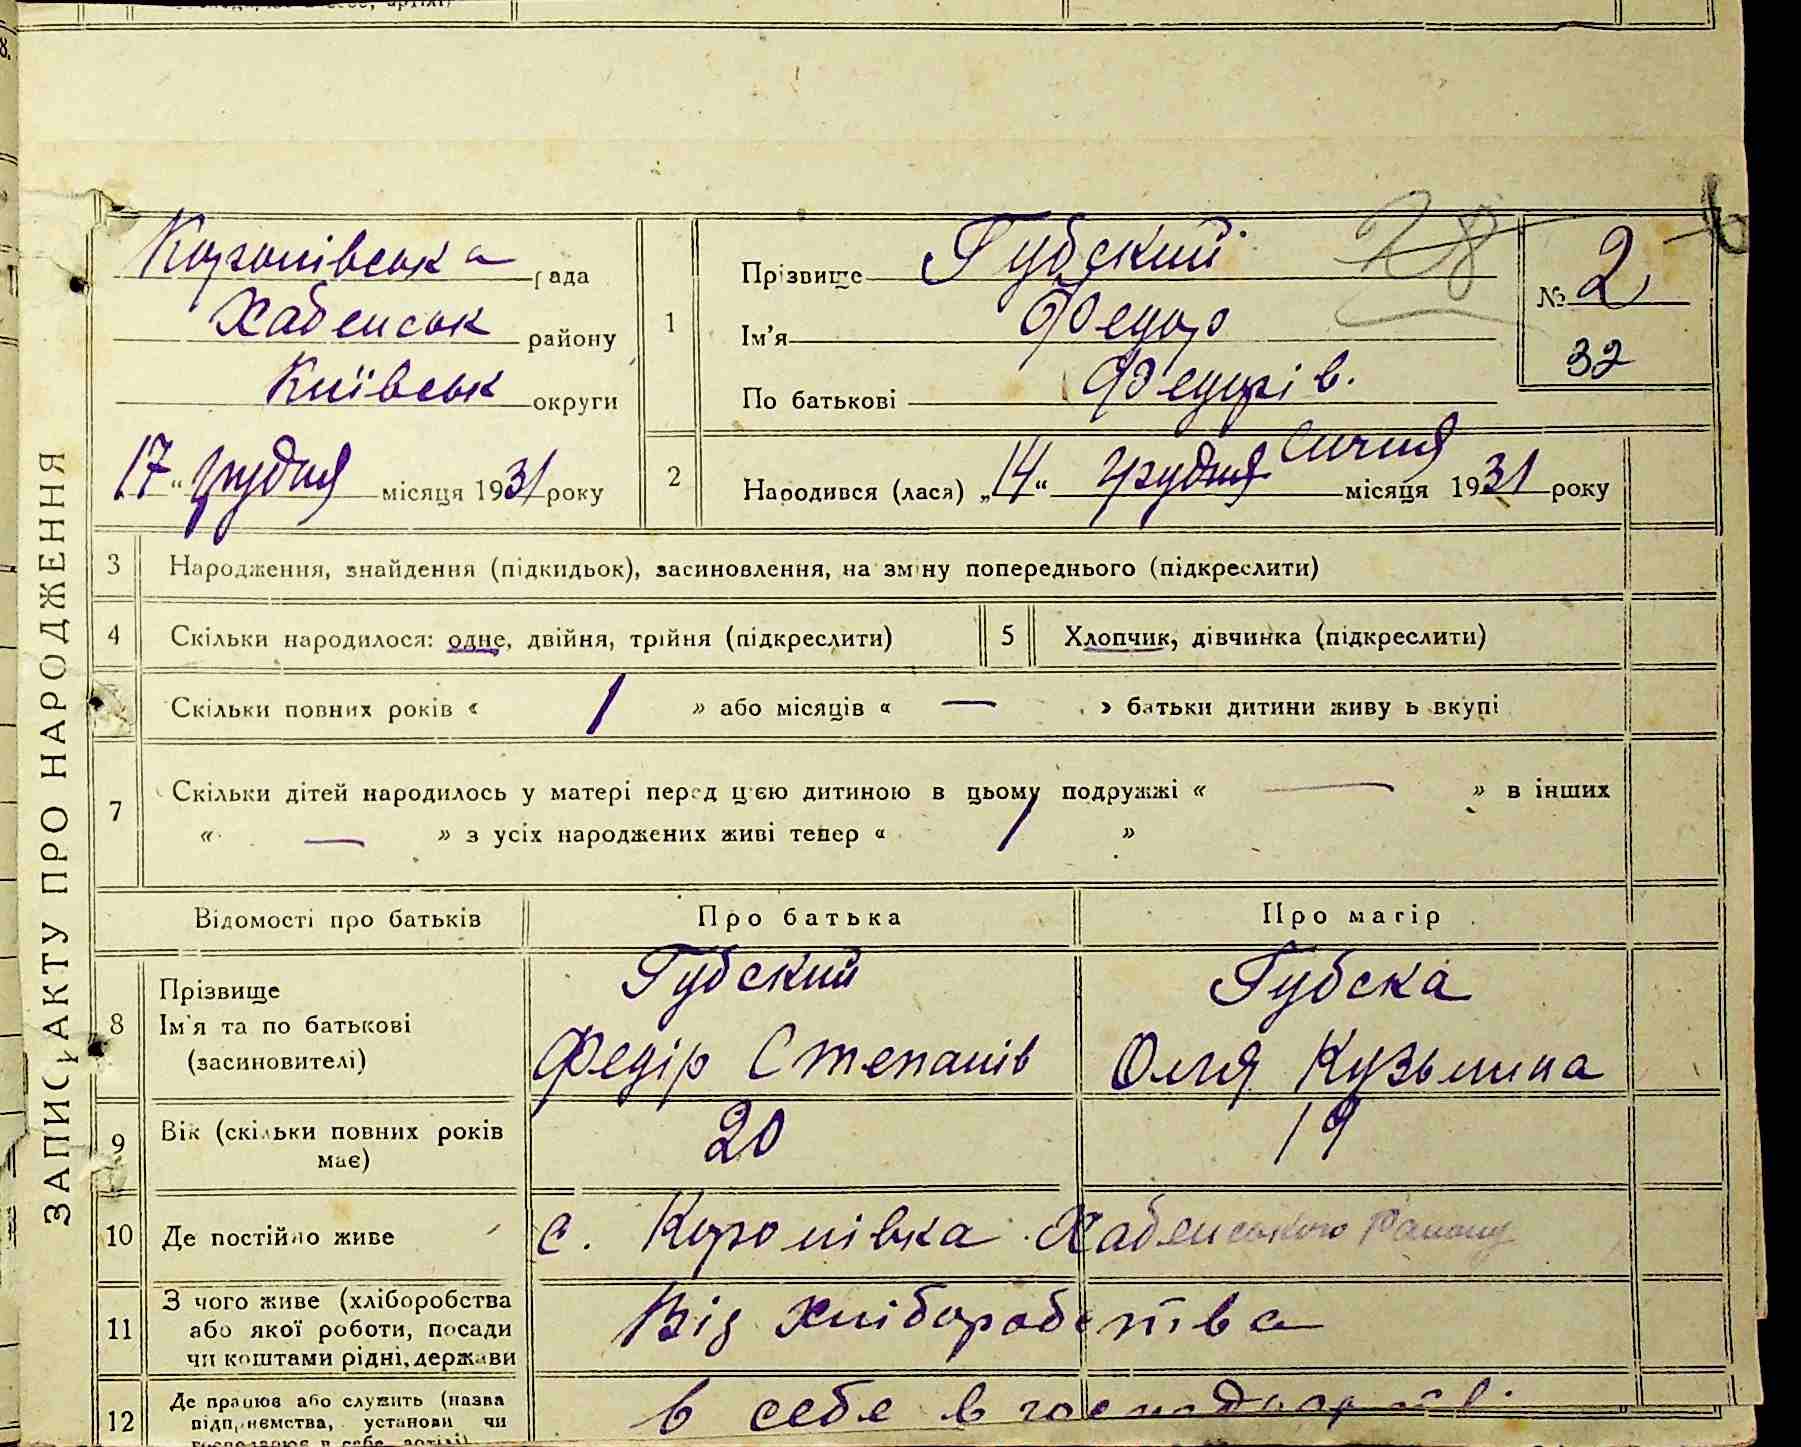 Королівська рада
Хабенськ району
Київськ округи
17 „ грудня місяця 1931 року
1
Прізвище Губский
Ім'я Федор
По батькові Федорів.
28
№ 2
32
2
Народився (лася) „14“ грудня січня місяця 1931 року
ЗАПИС АКТУ ПРО НАРОДЖЕННЯ
3 Народження, знайдення (підкидьок), засиновлення, на зміну попереднього (підкреслити)
4 Скільки народилося: одне, двійня, трійня (підкреслити)
5 Хлопчик, дівчинка (підкреслити)
Скільки повних років « 1 » або місяців « — » батьки дитини живуть вкупі
7 Скільки дітей народилось у матері перед цією дитиною в цьому подружжі « — » в інших
« — » з усіх народжених живі тепер « 1 »
Відомості про батьків Про батька Про матір
8 Прізвище
Ім'я та по батькові
(засиновителі)
Губский
Федір Степанів
Губска
Олия Кузьмина
9 Вік (скільки повних років
має)
20 19
10 Де постійно живе с. Королівка Хабенського Району
11 З чого живе (хліборобства
або якої роботи, посади
чи коштами рідні, держави
Від хліборобства
12 Де працює або служить (назва
підприємства, установи чи
в себе в господарстві